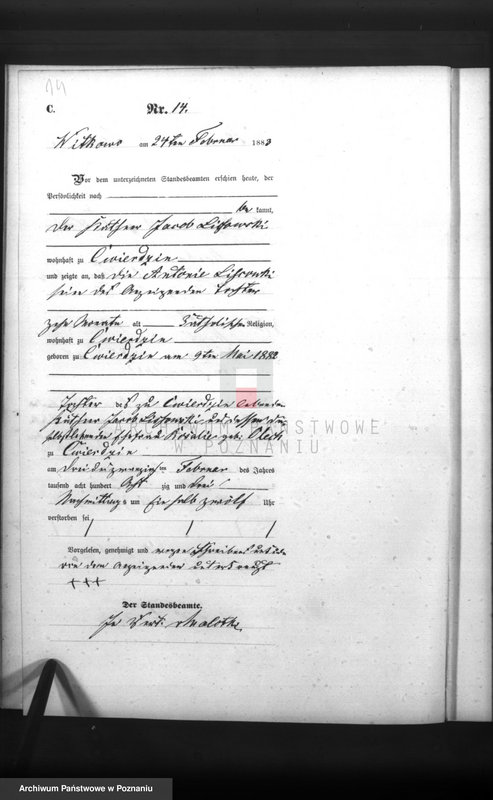 14
C. Nr. 14.
Witkowo am 24ten Februar 1883
Vor dem unterzeichneten Standesbeamten erschien heute, der
Persönlichkeit nach
be kannt,
der Jacob Lissowski
wohnhaft zu Cwierdzin
und zeigte an, daß die Antonie Lissowski
seine des Anzeigenden Tochter
zehn Monate alt katholischer Religion,
wohnhaft zu Cwierdzin
geboren zu Cwierdzin am 9ten Mai 1882
Tochter des zu Cwierdzin lebenden
Jacob Lissowski und dessen
Ehefrau Rosalie geb.
zu Cwierdzin
am drei und zwanzigsten Februar des Jahres
tausend acht hundert acht zig und drei
Nachmittags um ein halb zwölf Uhr
verstorben sei
Vorgelesen, genehmigt und wegen Schreibens
von dem Anzeigenden
+++
Der Standesbeamte.
In Vert.
ARCHIWUM PAŃSTWOWE
W POZNANIU
Archiwum Państwowe w Poznaniu